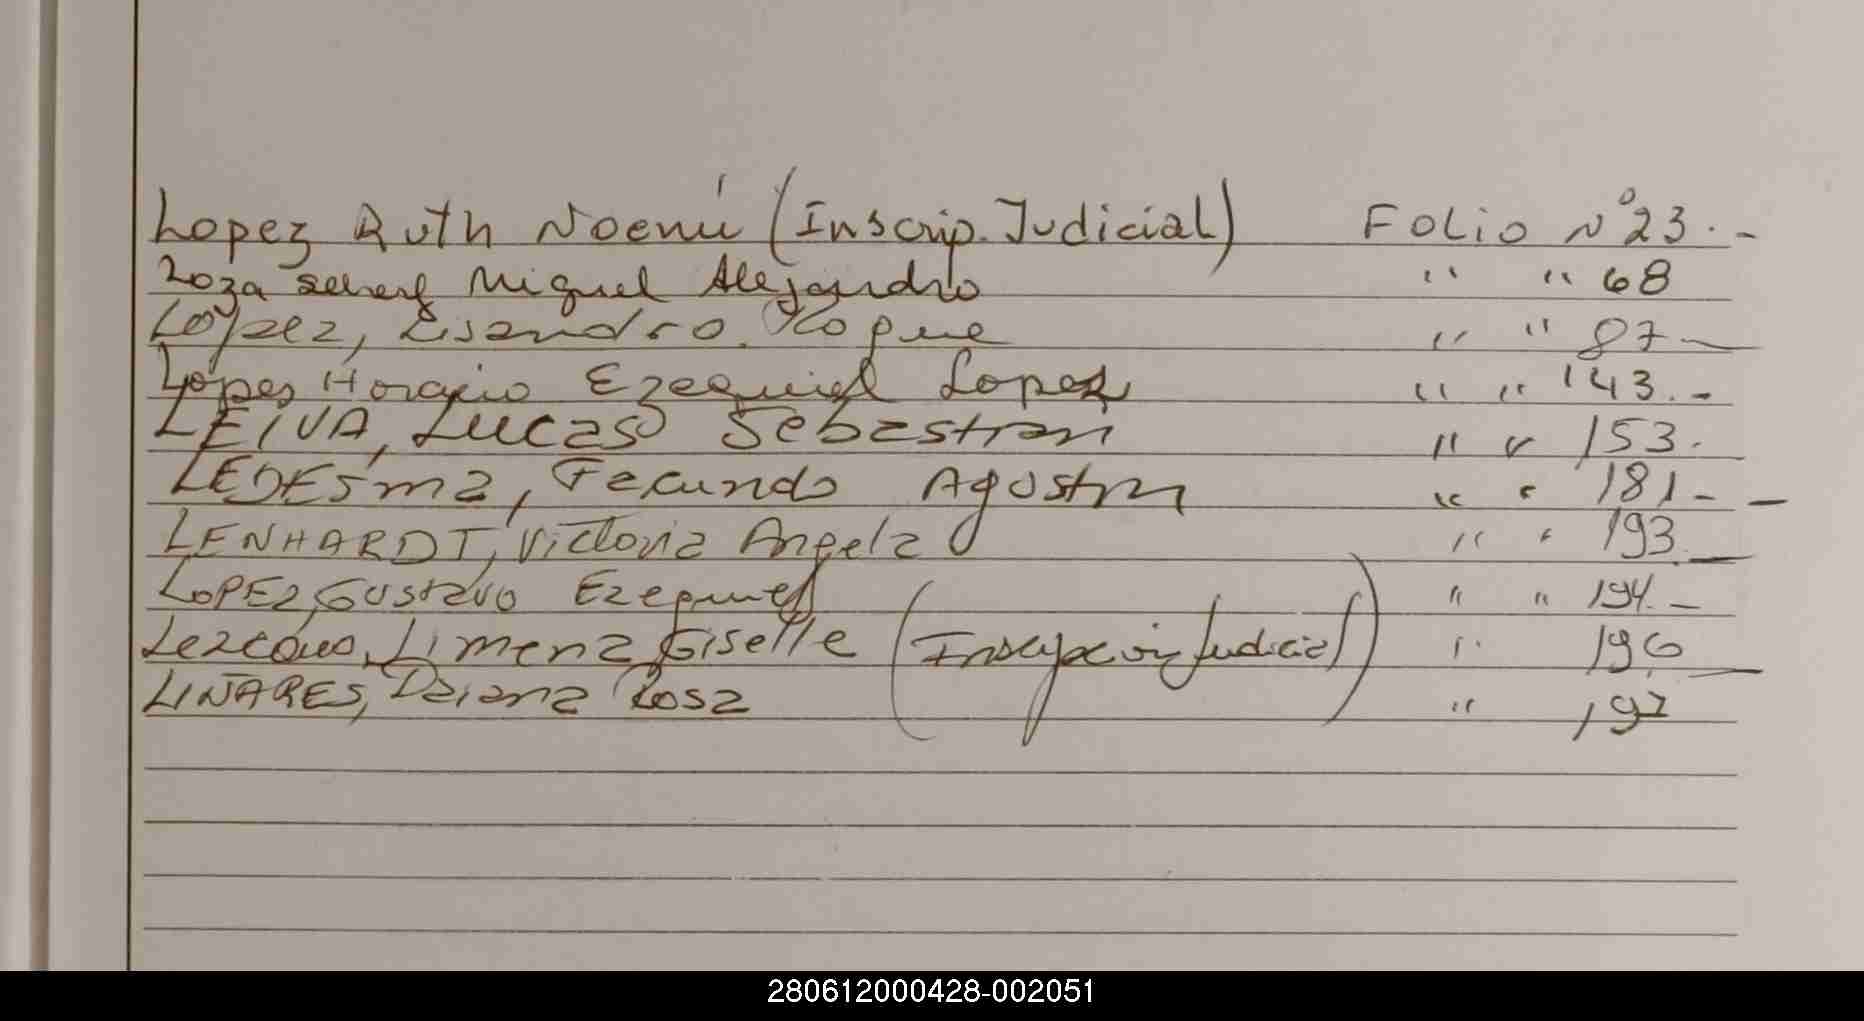 Lopez Ruth Noemí (Inscrip. Judicial) Folio Nº 23.-
Loza Miguel Alejandro " " 68
López, Lisandro Roque " " 87-
Lopez Horacio Ezequiel Lopez " " 143.-
LEIVA, Lucas Sebastian " " 153.
LEDESma, Facundo Agustin " " 181--
LENHARDT, Victoria Angela " " 193.-
LOPEZ, Gustavo Ezequiel " " 194.-
Lezcano, Limena Giselle (Inscripcion Judicial) " 196-
LINARES, Daiana Rosa " 197
280612000428-002051